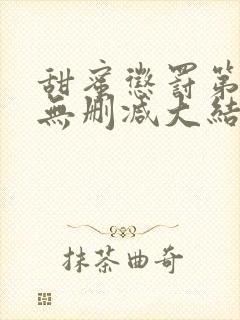 甜蜜懲罰第
無刪減大結
抹茶曲奇